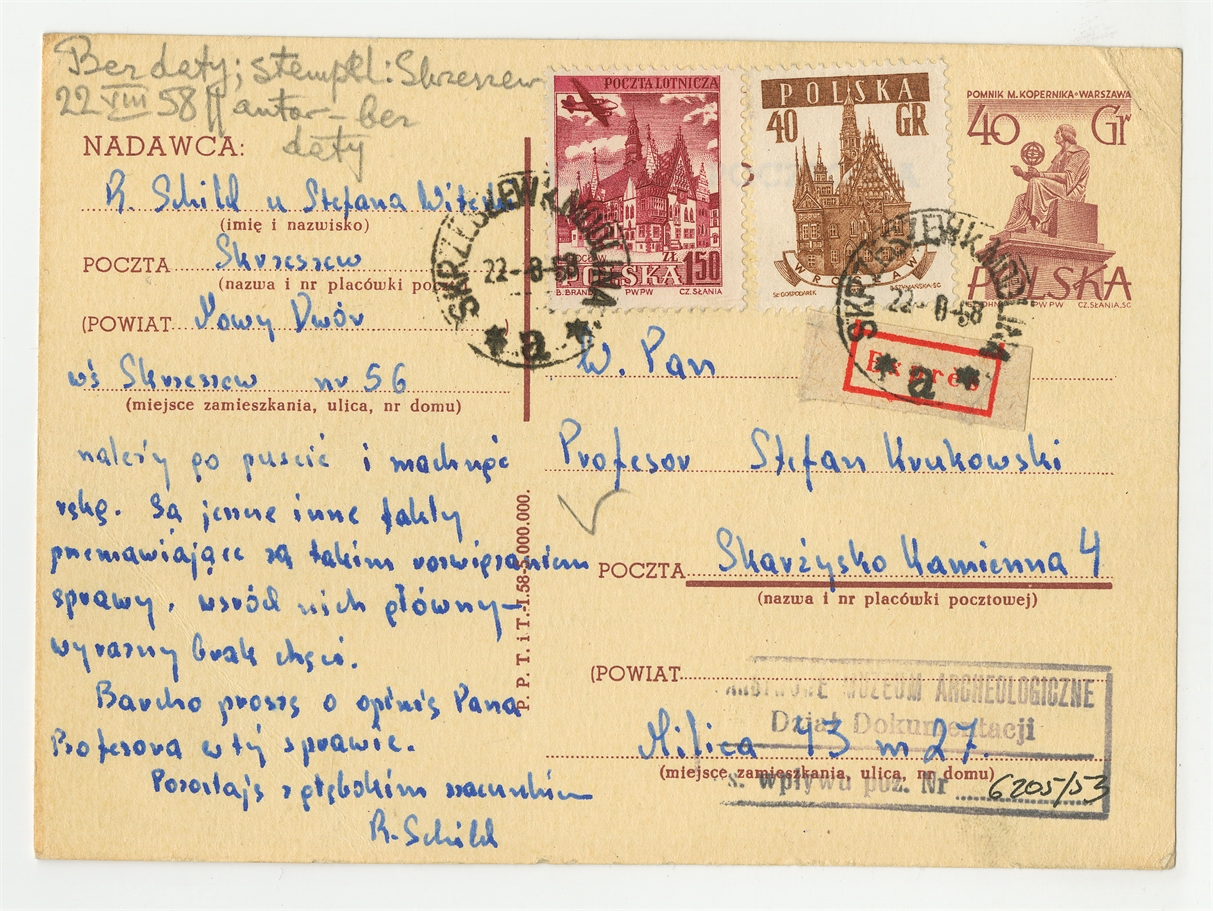 Bez daty; stempel: Skrzeszew
22 VIII 58 || autor – bez
daty
NADAWCA:
R. Schild u Stefana Witeski
(imię i nazwisko)
POCZTA Skrzeszew
(nazwa i nr placówki poczt
(POWIAT Nowy Dwór )
wś Skrzeszew nr 56
(miejsce zamieszkania, ulica, nr domu)
należy po puscić i machnąć
ręką. Są jeszcze inne fakty
przemawiające za takim rozwiązaniem
sprawy, wsród nich główny –
wyraźny brak chęci.
Bardzo proszę o opinię Pana
Profesora w tej sprawie.
Pozostaję z głębokim szacunkiem
R. Schild
P. P. T. i T.-I.58-3.000.000.
POCZTA LOTNICZA
WROCŁAW
ZŁ 1 50
POLSKA
B. BRANDT PWPW CZ. SŁANIA
POLSKA
40 GR
WROCŁAW
ST. GOSPODAREK B. SZYMAŃSKA SC
POMNIK M. KOPERNIKA • WARSZAWA
40 Gr
POLSKA
PWPW CZ. SŁANIA, SC
SKRZESZEW K. MODLINA
22-8-58
* a *
SKRZESZEW K. MODLINA
22-8-58
* a *
Expres
W. Pan
Profesor Stefan Krukowski
POCZTA Skarżysko Kamienna 4
(nazwa i nr placówki pocztowej)
(POWIAT
PAŃSTWOWE MUZEUM ARCHEOLOGICZNE
Dział Dokumentacji
Milica 43 m 27.
(miejsce zamieszkania, ulica, nr domu)
s. wpływu poz. Nr 6205/53